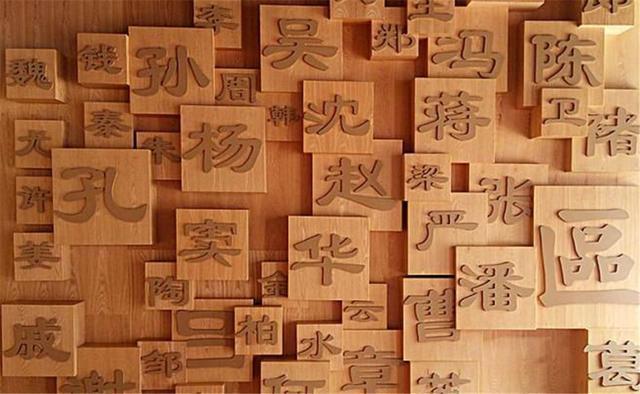 李
吴
郑
王
冯
陈
魏
钱
孙
周
韩
沈
蒋
卫
褚
尤
秦
朱
杨
许
孔
赵
梁
张
严
姜
窦
华
區
陶
金
云
曹
潘
戚
柏
水
邹
谢
何
章
葛